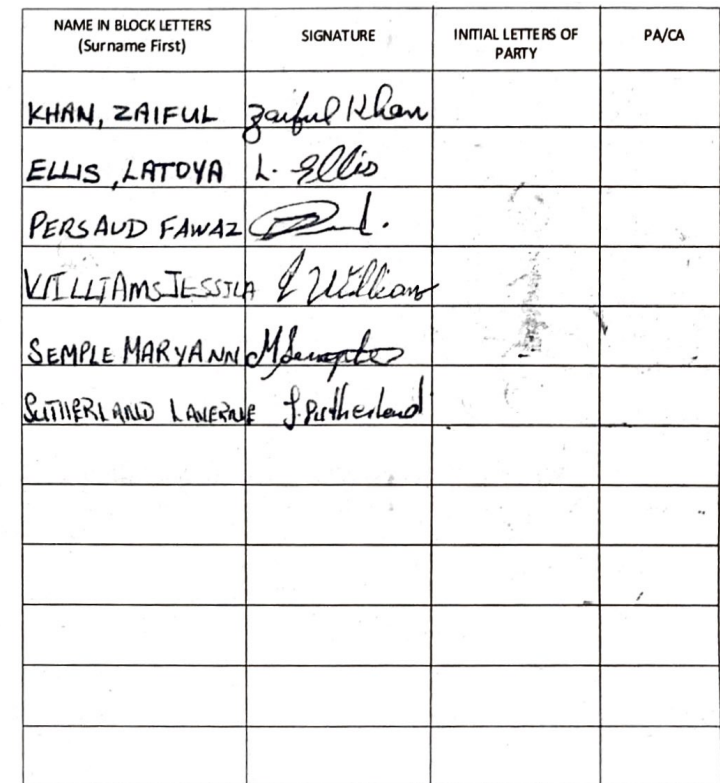 NAME IN BLOCK LETTERS SIGNATURE INITIAL LETTERS OF PA/CA
(Surname First) PARTY
KHAN, ZAIFUL Zaiful Khan
ELLIS, LATOYA L. Ellis
PERSAUD FAWAZ
WILLIAMS JESSICA J Williams
SEMPLE MARYANN M Semple
SUTHERLAND LAVERNE L. Sutherland